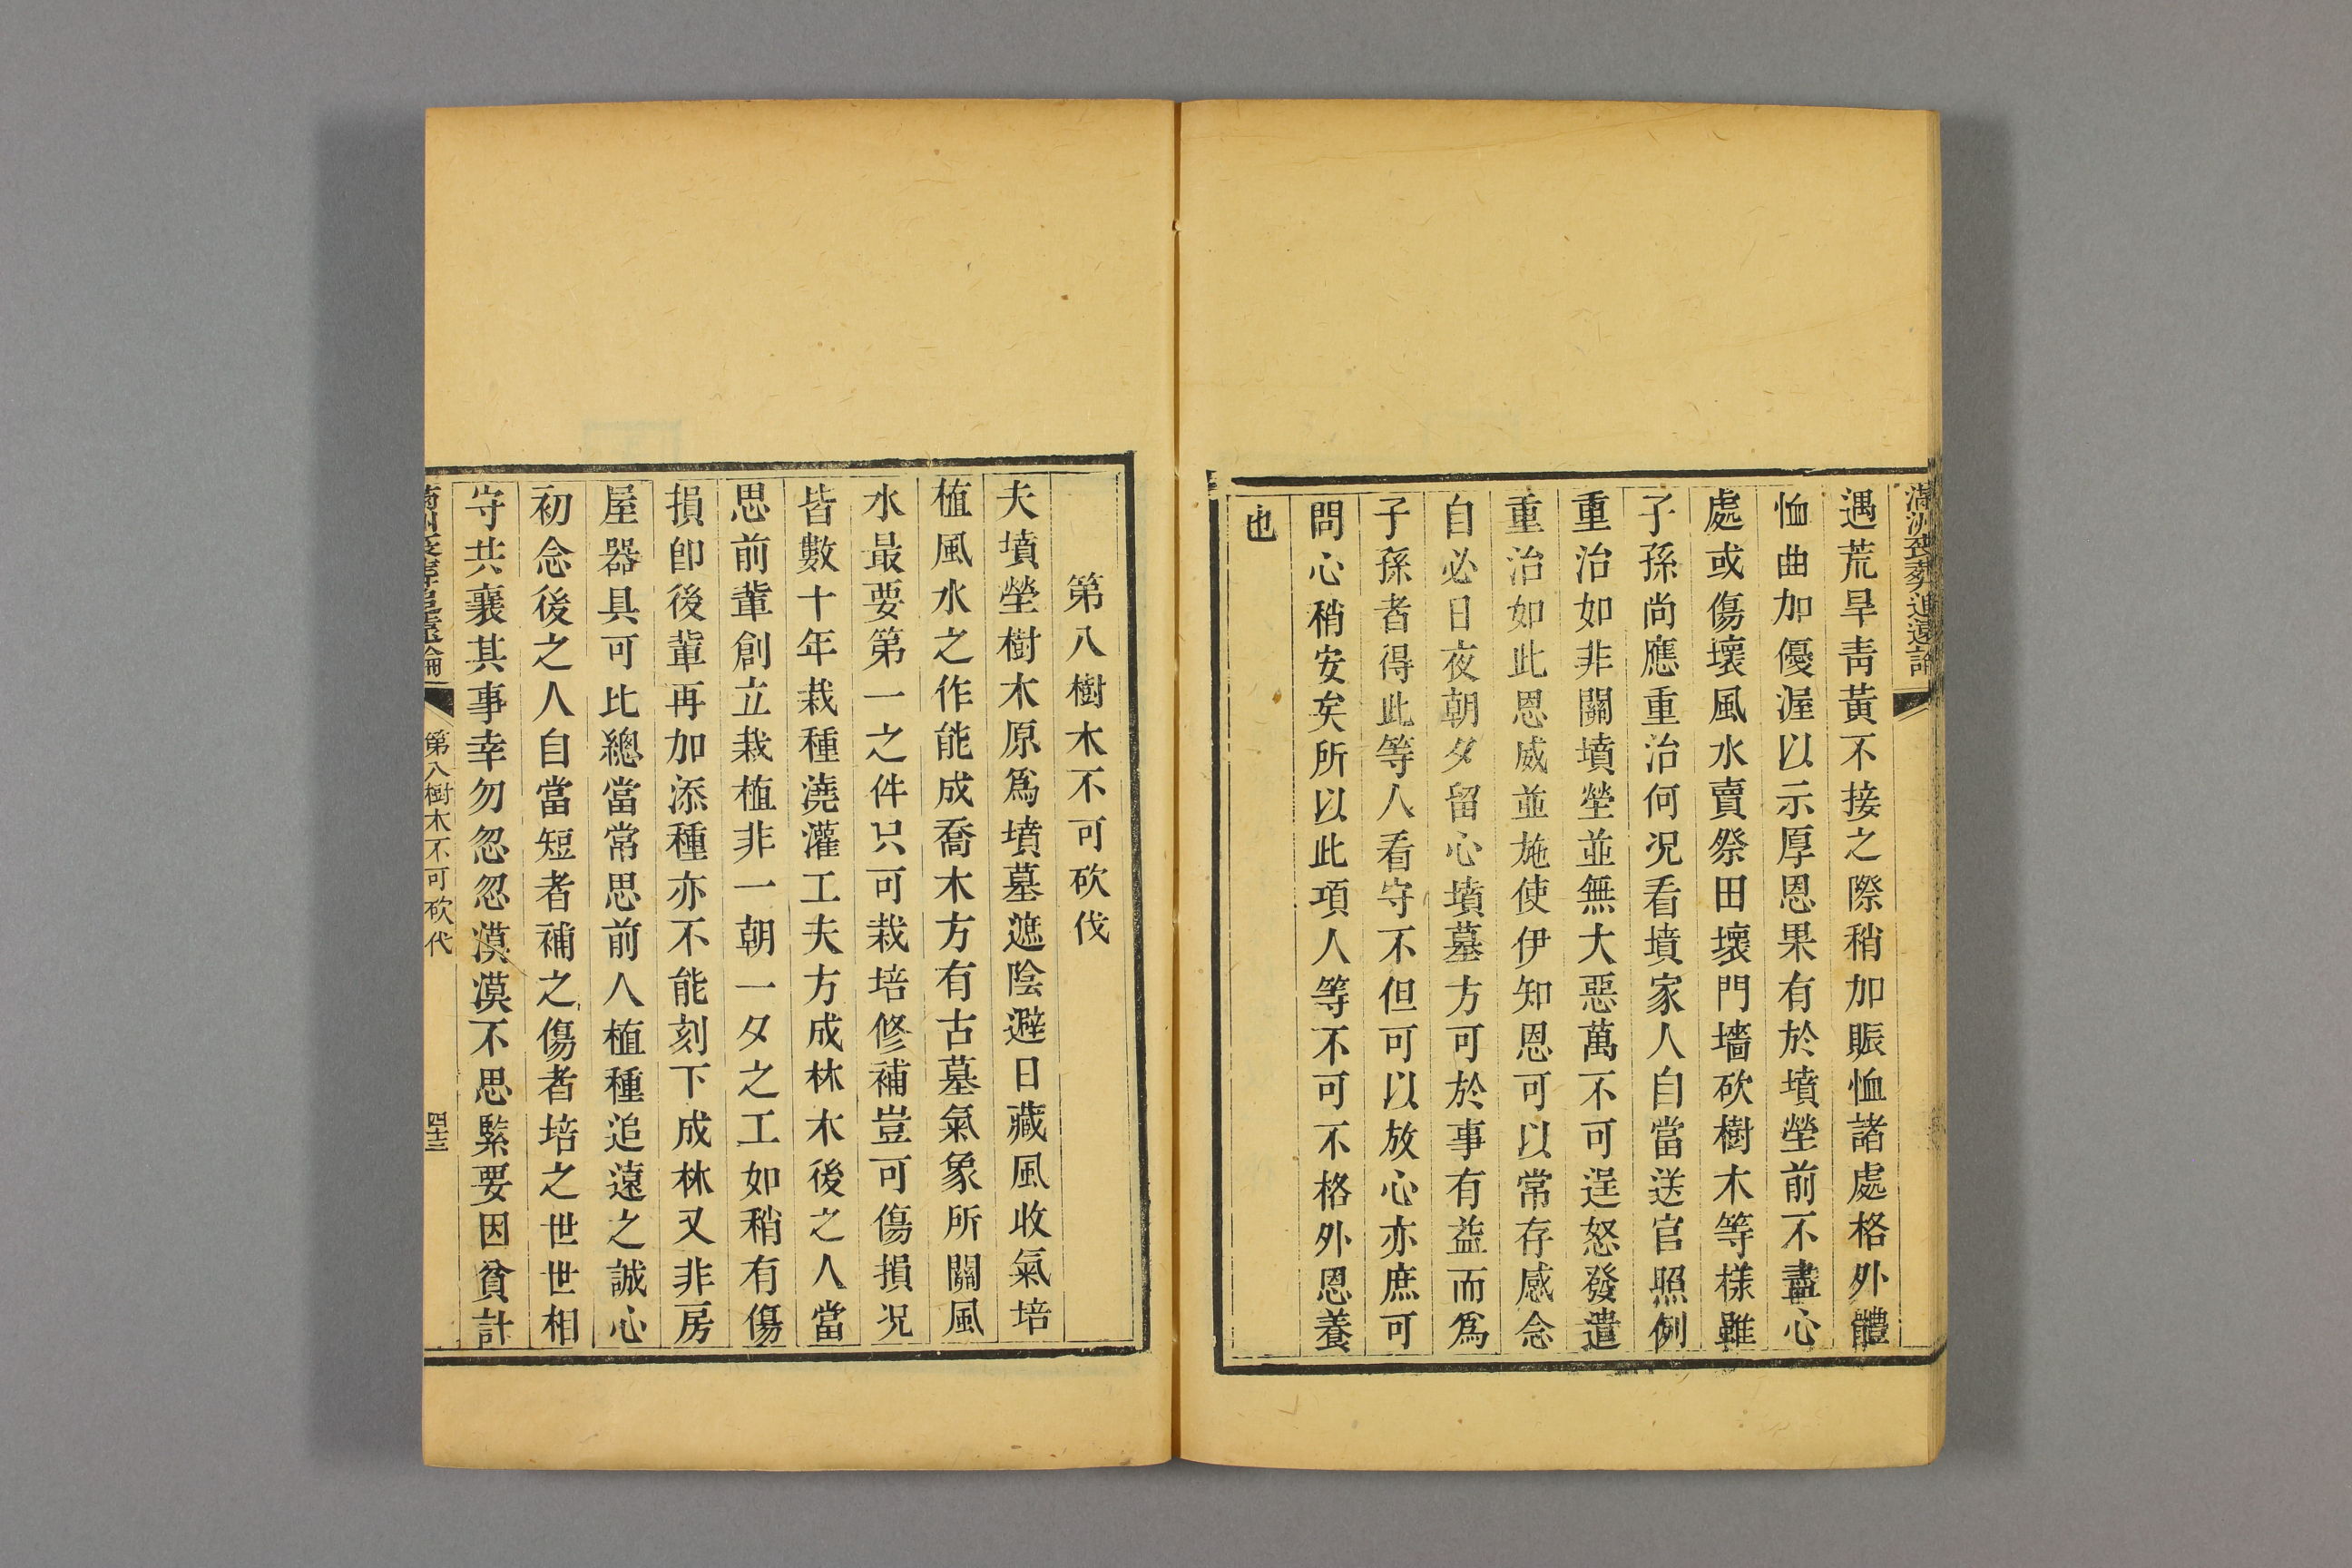 滿洲喪葬追遠論
遇荒旱靑黃不接之際稍加賑恤諸處格外體
恤曲加優渥以示厚恩果有於墳塋前不盡心
處或傷壞風水賣祭田壞門墻砍樹木等樣雖
子孫尚應重治何况看墳家人自當送官照例
重治如非關墳塋並無大惡萬不可逞怒發遣
重治如此恩威並施使伊知恩可以常存感念
自必日夜朝夕留心墳墓方可於事有益而爲
子孫者得此等人看守不但可以放心亦庶可
問心稍安矣所以此項人等不可不格外恩養
也
第八樹木不可砍伐
夫墳塋樹木原爲墳墓遮陰避日藏風收氣培
植風水之作能成喬木方有古墓氣象所關風
水最要第一之件只可栽培修補豈可傷損况
皆數十年栽種澆灌工夫方成林木後之人當
思前輩創立栽植非一朝一夕之工如稍有傷
損卽後輩再加添種亦不能刻下成林又非房
屋器具可比總當常思前人植種追遠之誠心
初念後之人自當短者補之傷者培之世世相
守共襄其事幸勿忽忽漠漠不思緊要因貧計
滿洲喪葬追遠論
第八樹木不可砍伐
四十三